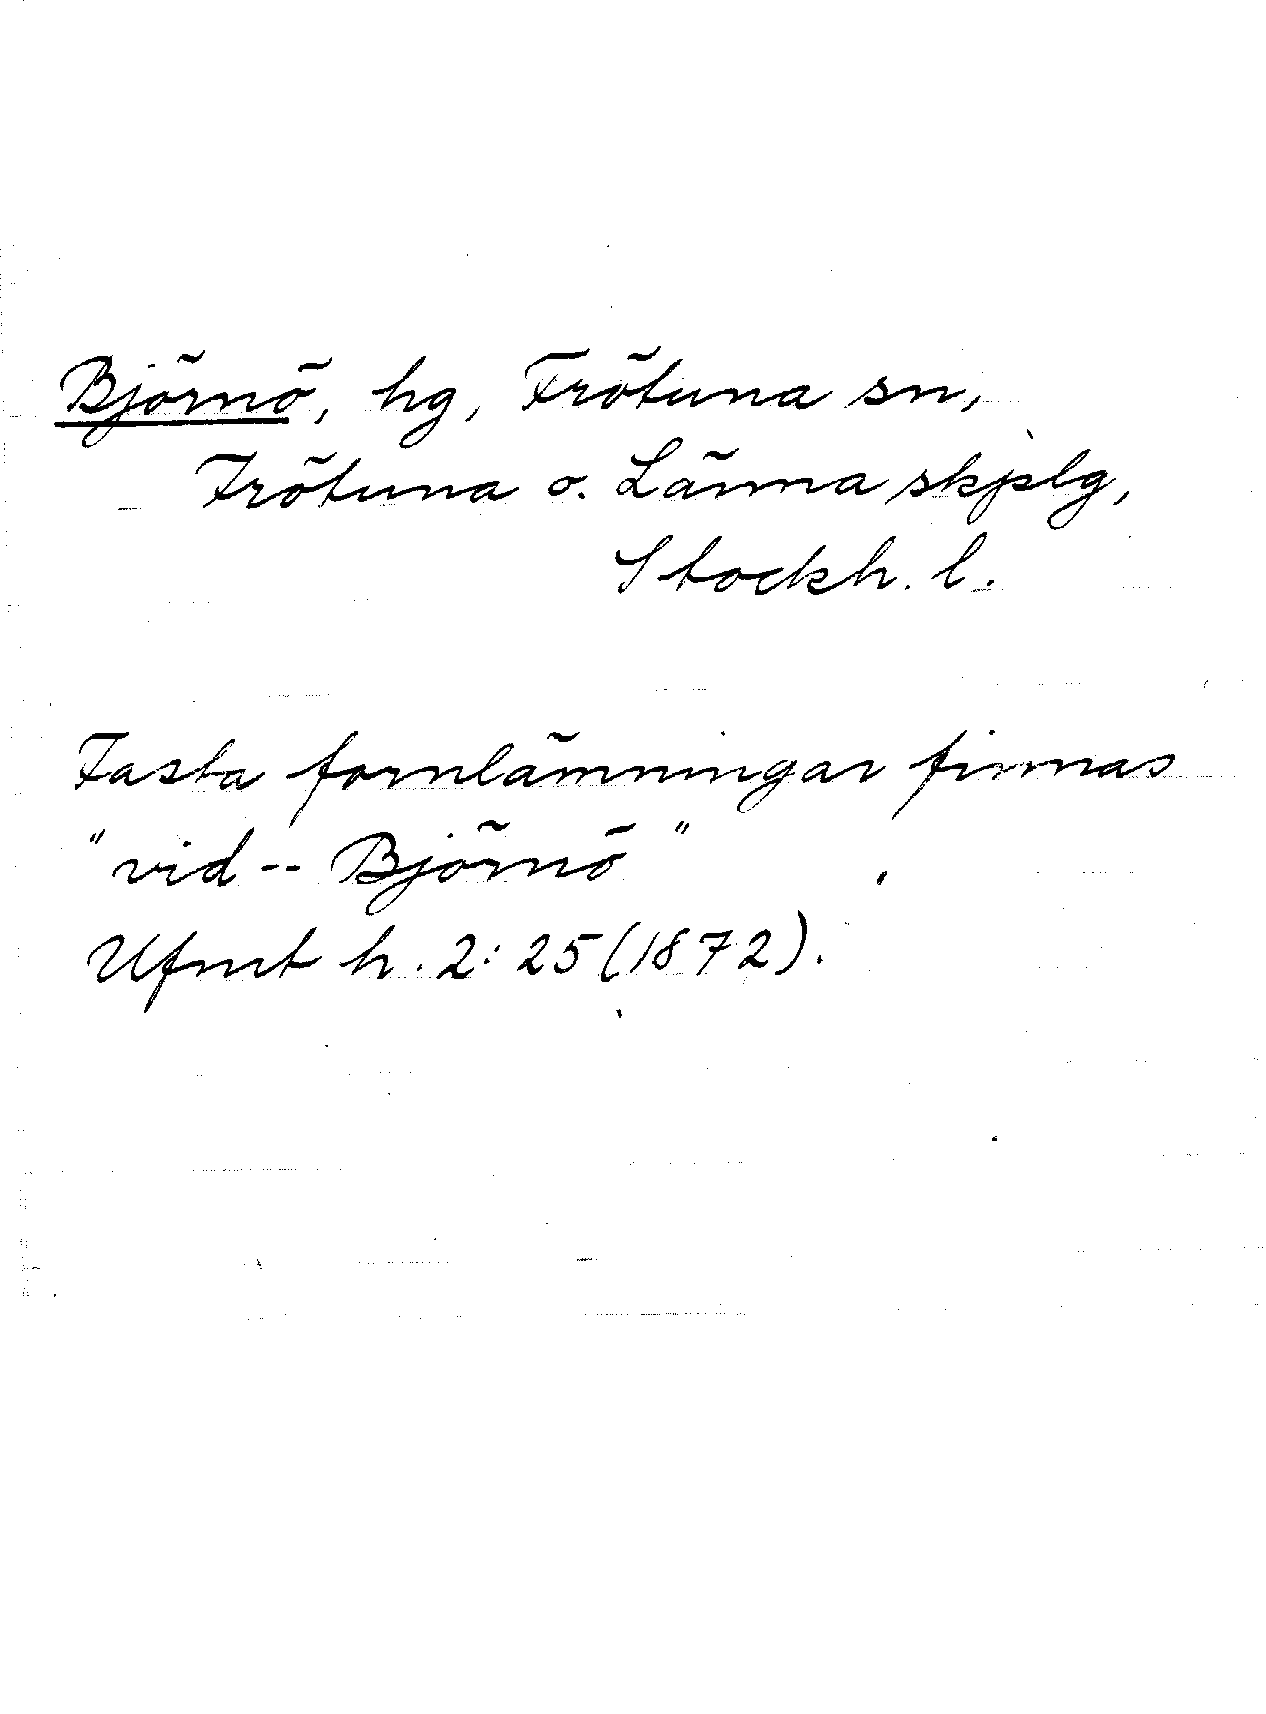 Björnö, hg, Frötuna sn,
Frötuna o. Länna skplg,
Stockh. l.
Fasta fornlämningar finnas
"vid -- Björnö"
Ufmt h. 2: 25 (1872).